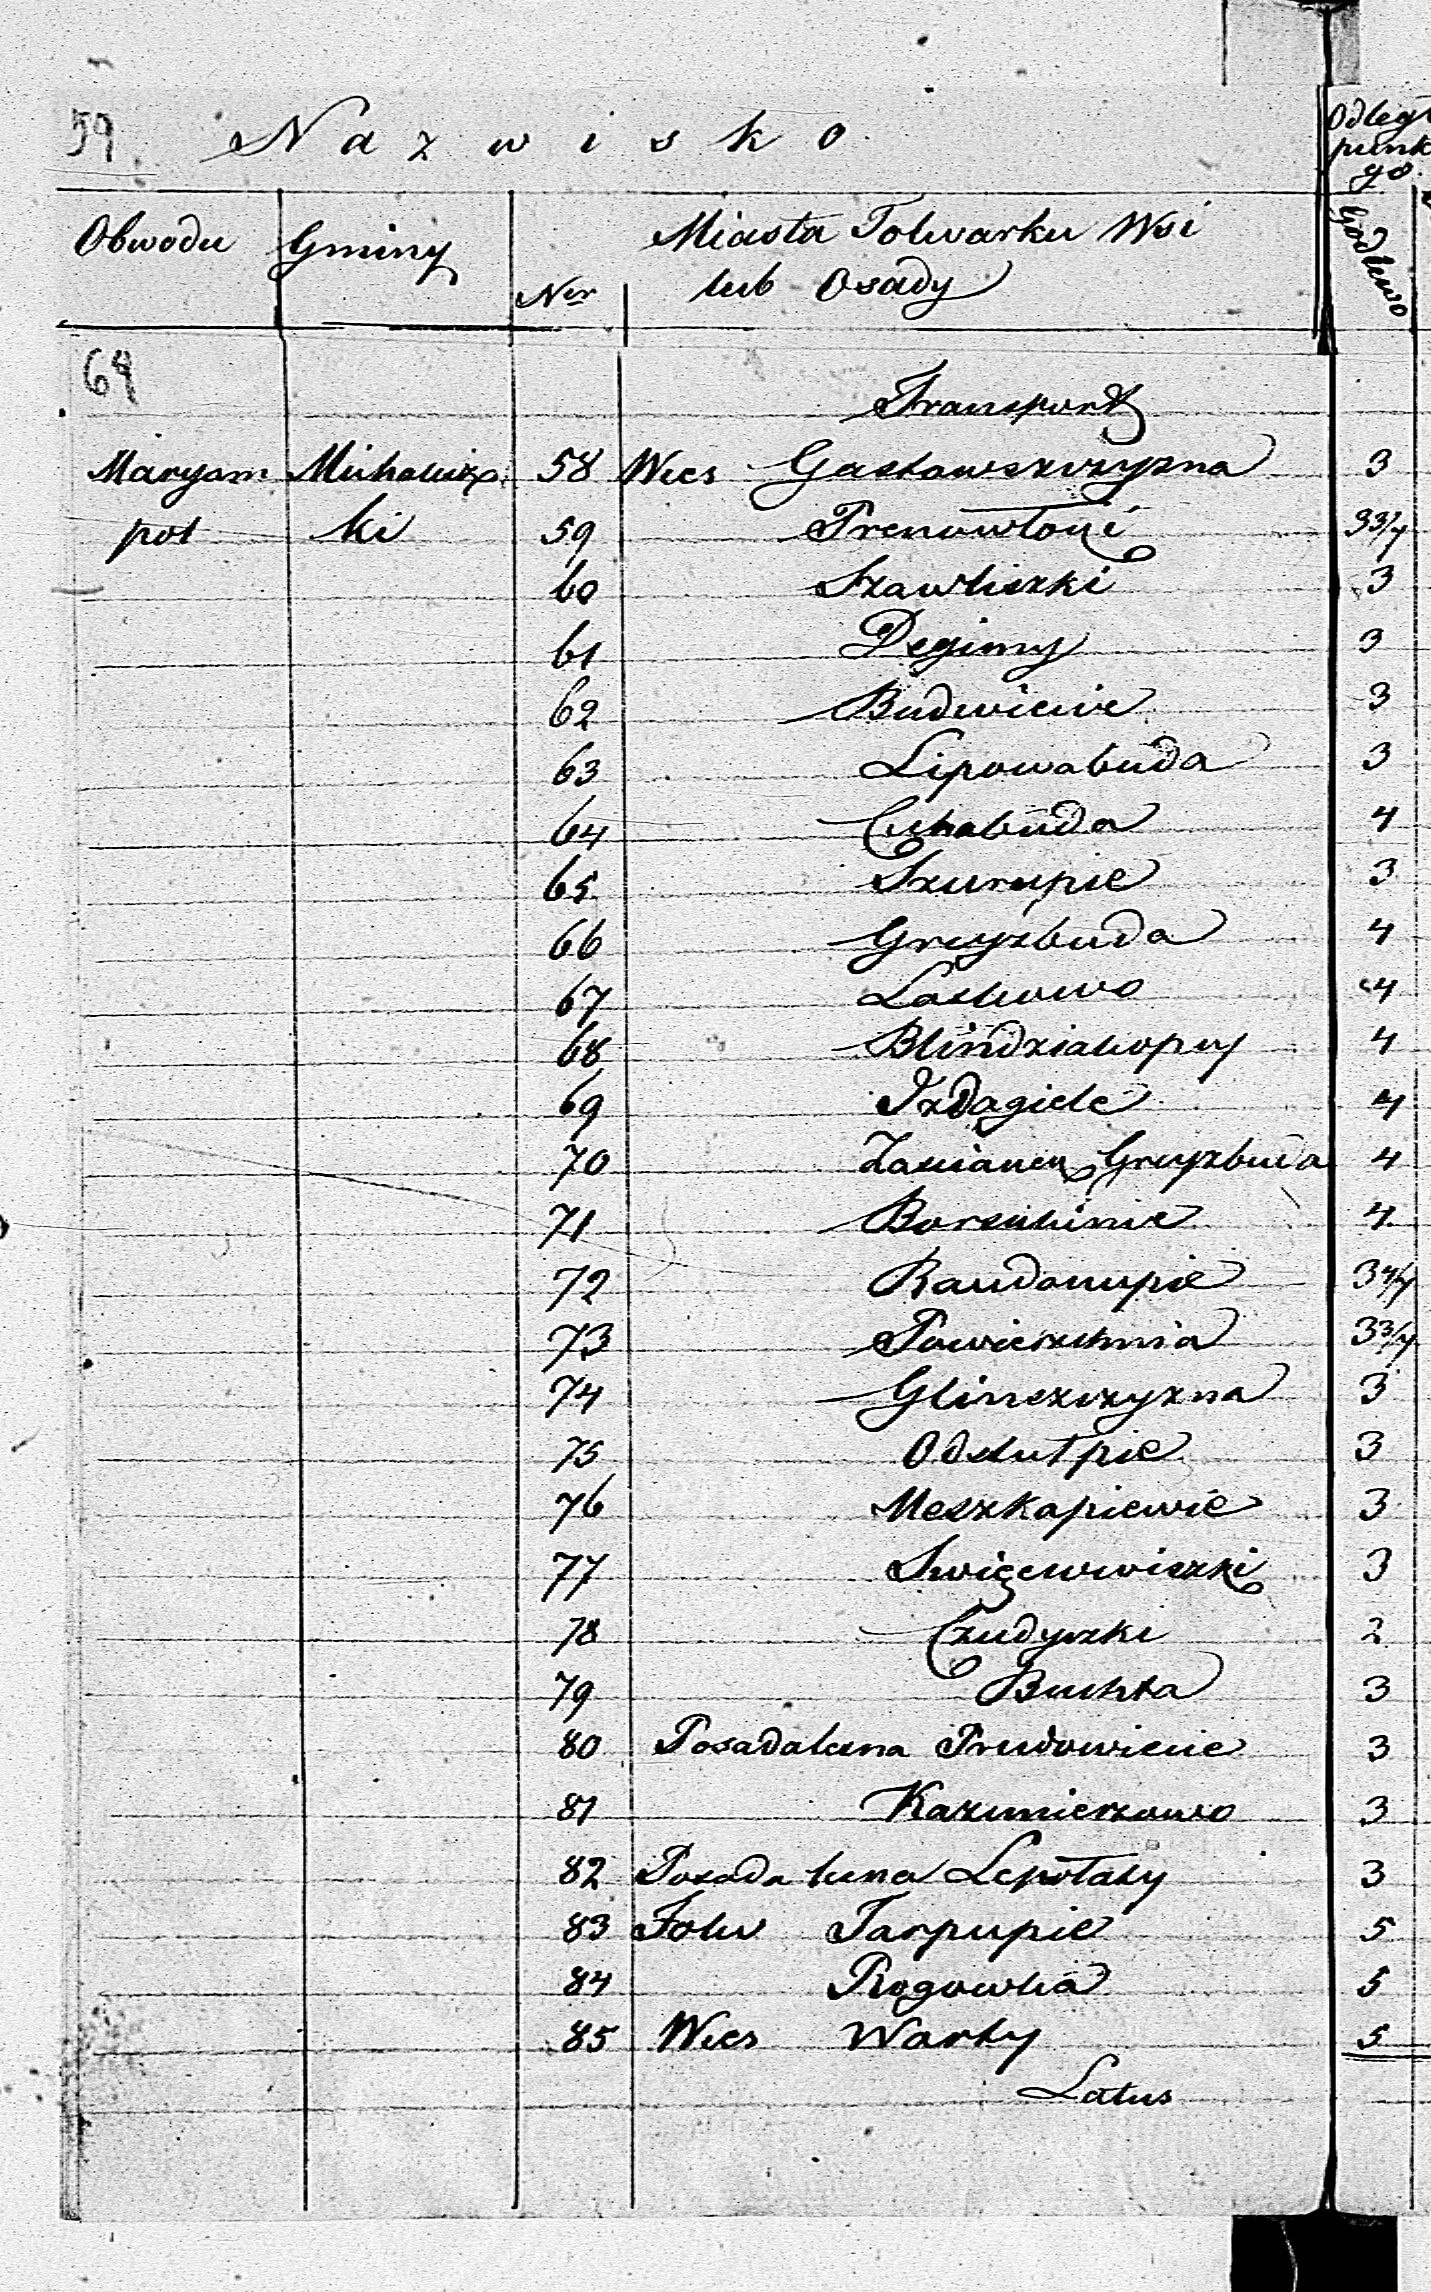 59. Nazwisko
Odległ
punk
go.
Obwodu Gminy Ner Miasta Folwarku Wsi
lub Osady
Godlewo
64
Transport
Maryam Michalisz 58 Wies Gastawszczyzna 3
pol ki 59 Prenowłoki 3 3/4
60 Szawliszki 3
61 Degimy 3
62 Budwiecie 3
63 Lipowabuda 3
64 Cichabuda 4
65 Szurupie 3
66 Gryzbuda 4
67 Laskowo 4
68 Blindziakopy 4
69 Izdagiele 4
70 Zascianek Gryzbuda 4
71 Borsukinie 4
72 Raudonupie 3 4/4
73 Powierzchnia 3 3/4
74 Glinszczyzna 3
75 Odslutpie 3
76 Meszkapiewie 3
77 3
78 Czudyszki 2
79 Buchta 3
80 Posadalesna Prudowiecie 3
81 Kazimierzowo 3
82 Posada lesna Lepołaty 3
83 Folw Tarpupie 5
84 Rogowka 5
85 Wies Warty 5
Latus